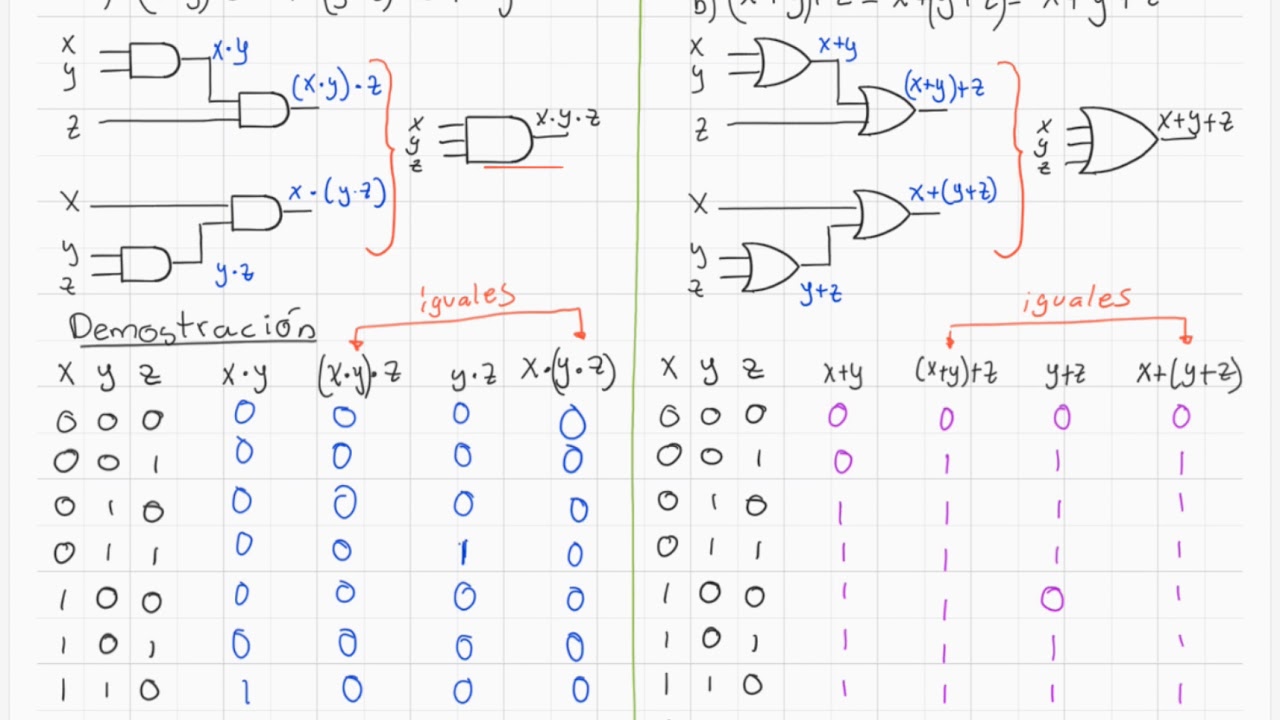 b) (x+y)+z = x+(y+z) = x+y+z
x
y
z
x·y
(x·y)·z
x
y
z
x·y·z
x
y
z
x·(y·z)
y·z
x
y
z
x+y
(x+y)+z
x
y
z
x+y+z
x
y
z
x+(y+z)
y+z
iguales
Demostración
x y z x·y (x·y)·z y·z x·(y·z)
0 0 0 0 0 0 0
0 0 1 0 0 0 0
0 1 0 0 0 0 0
0 1 1 0 0 1 0
1 0 0 0 0 0 0
1 0 1 0 0 0 0
1 1 0 1 0 0 0
iguales
x y z x+y (x+y)+z y+z x+(y+z)
0 0 0 0 0 0 0
0 0 1 0 1 1 1
0 1 0 1 1 1 1
0 1 1 1 1 1 1
1 0 0 1 1 0 1
1 0 1 1 1 1 1
1 1 0 1 1 1 1